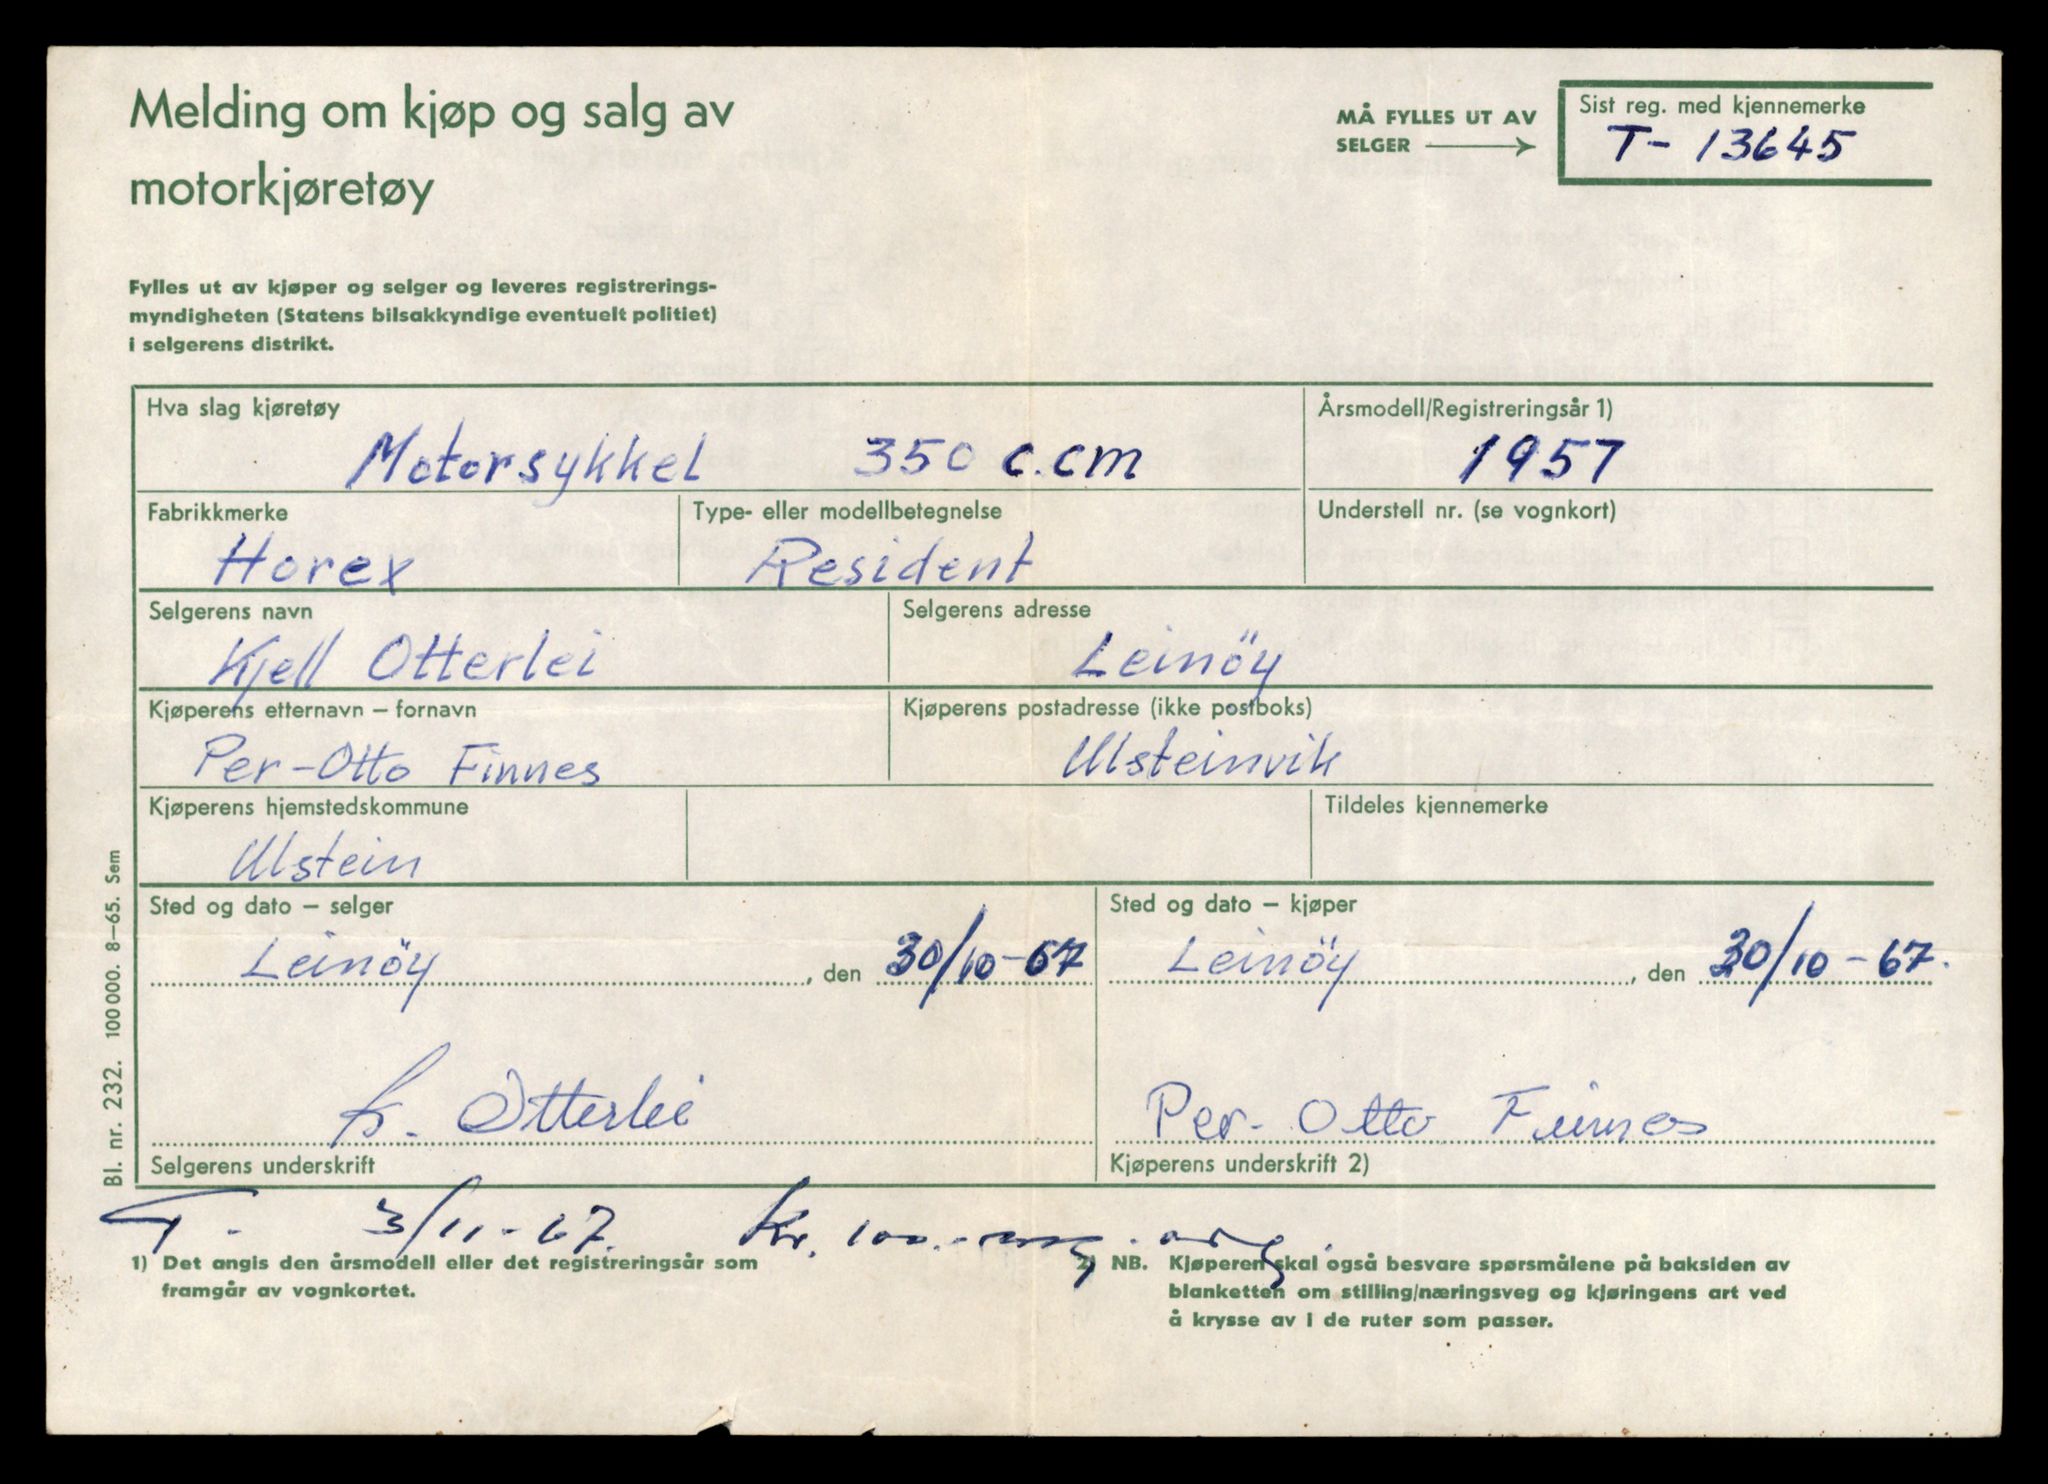 Melding om kjøp og salg av
motorkjøretøy
MÅ FYLLES UT AV
SELGER
Sist reg. med kjennemerke
T- 13645
Fylles ut av kjøper og selger og leveres registrerings-
myndigheten (Statens bilsakkyndige eventuelt politiet)
i selgerens distrikt.
Hva slag kjøretøy
Motorsykkel 350 c.cm
Årsmodell/Registreringsår 1)
1957
Fabrikkmerke
Horex
Type- eller modellbetegnelse
Resident
Understell nr. (se vognkort)
Selgerens navn
Kjell Otterlei
Selgerens adresse
Leinöy
Kjøperens etternavn – fornavn
Per-Otto Finnes
Kjøperens postadresse (ikke postboks)
Ulsteinvik
Kjøperens hjemstedskommune
Ulstein
Tildeles kjennemerke
Sted og dato – selger
Leinöy, den 30/10-67
Sted og dato – kjøper
Leinöy, den 30/10-67.
K. Otterlei
Selgerens underskrift
Per-Otto Finnes
Kjøperens underskrift 2)
T. 3/11-67. Kr. 100.-
1) Det angis den årsmodell eller det registreringsår som
framgår av vognkortet.
2) NB. Kjøperen skal også besvare spørsmålene på baksiden av
blanketten om stilling/næringsveg og kjøringens art ved
å krysse av i de ruter som passer.
Bl. nr. 232. 100 000. 8–65. Sem